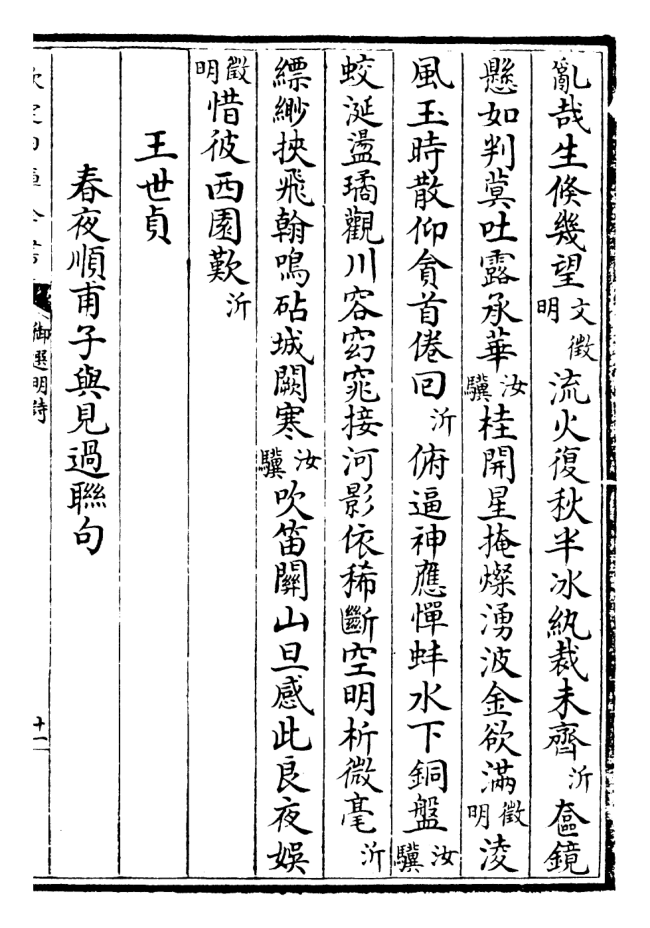 亂哉生倏幾望文徵明流火復秋半冰紈裁未齊沂奩鏡
懸如判蓂吐露承華汝驥桂開星掩燦湧波金欲滿徵明淩
風玉時散仰貪首倦回沂俯逼神應憚蚌水下銅盤汝驥
蛟涎盪璚觀川容窈窕接河影依稀斷空明析微毫沂
縹緲挾飛翰鳴砧城闕寒汝驥吹笛關山旦感此良夜娛
徵明惜彼西園歎沂
王世貞
春夜順甫子與見過聯句
欽定四庫全書
御選明詩